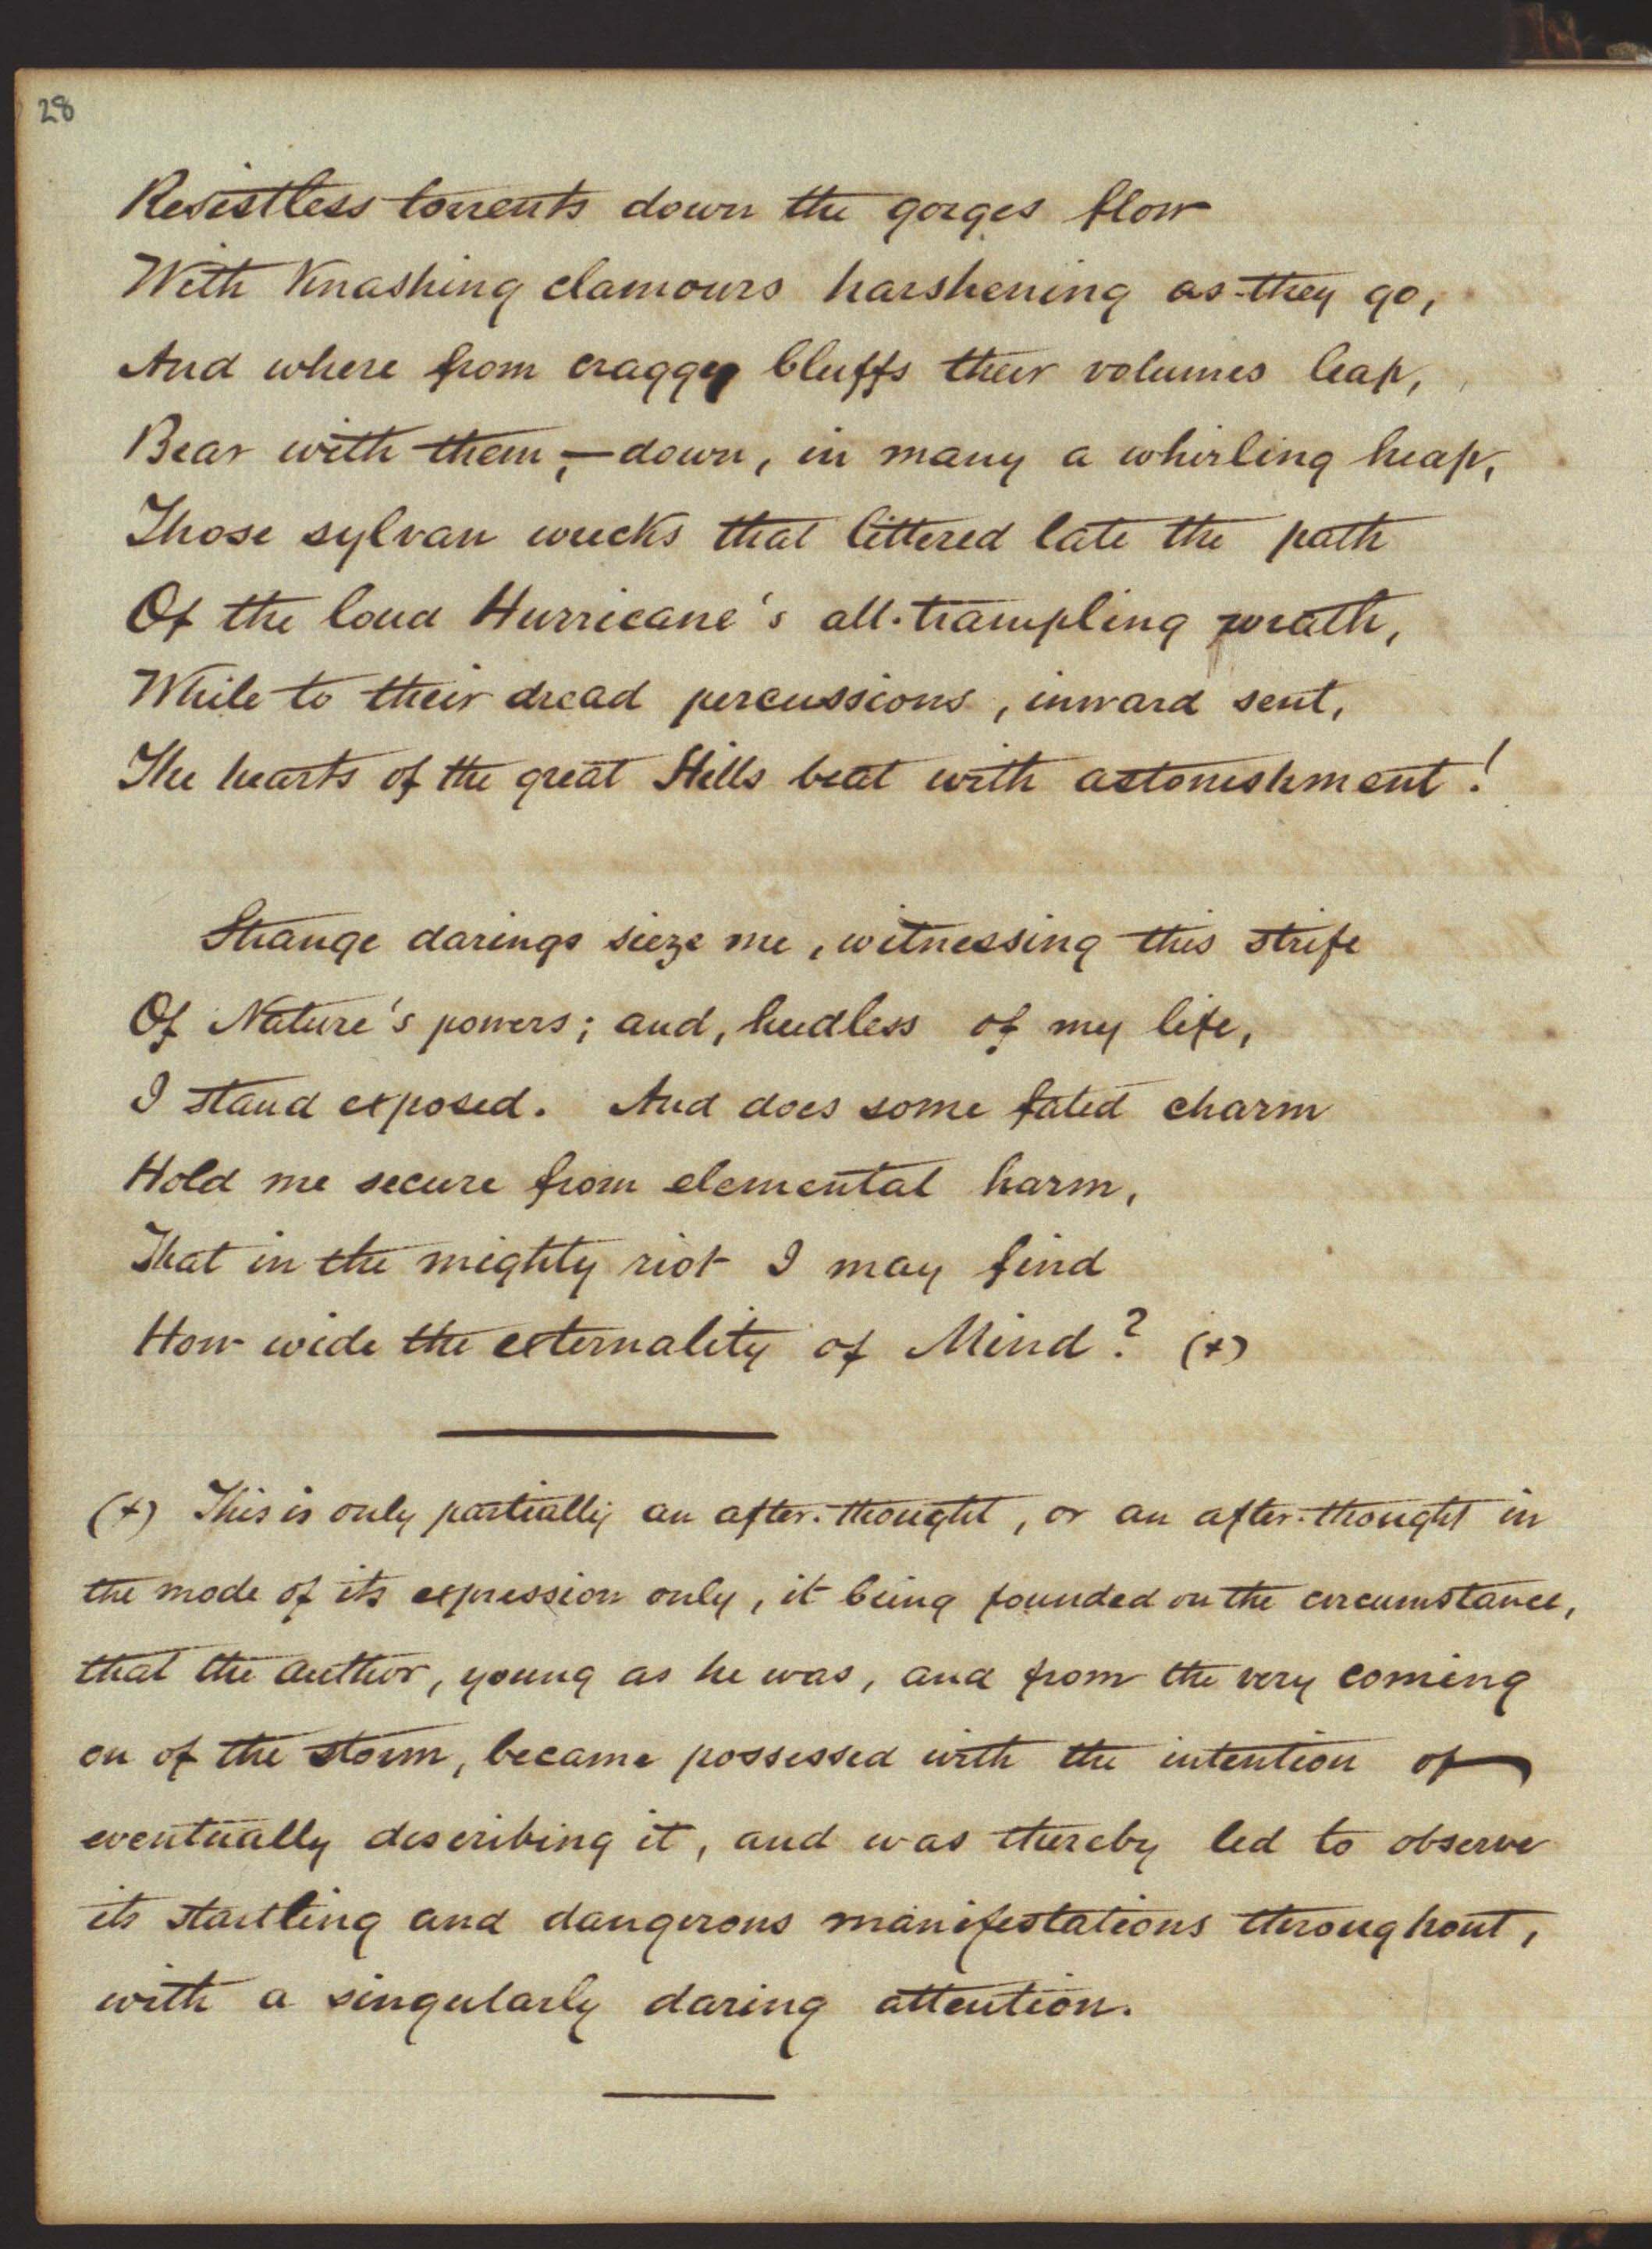 28
Resistless torrents down the gorges flow
With knashing clamours harshening as they go,
And where from craggy bluffs their volumes leap,
Bear with them,—down, in many a whirling heap,
Those sylvan wrecks that littered late the path
Of the loud Hurricane's all-trampling wrath,
While to their dread percussions, inward sent,
The hearts of the great Hills beat with astonishment!
Strange darings sieze me, witnessing this strife
Of Nature's powers; and, heedless of my life,
I stand exposed. And does some fated charm
Hold me secure from elemental harm,
That in the mighty riot I may find
How wide the externality of Mind? (+)
(+) This is only partially an after-thought, or an after-thought in
the mode of its expression only, it being founded on the circumstance,
that the author, young as he was, and from the very coming
on of the storm, became possessed with the intention of
eventually describing it, and was thereby led to observe
its startling and dangerous manifestations throughout,
with a singularly daring attention.